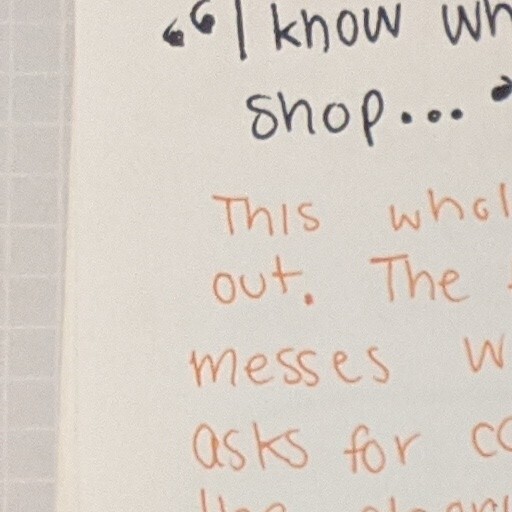 “I know wh
shop..."
This whol
out. The
messes w
asks for co